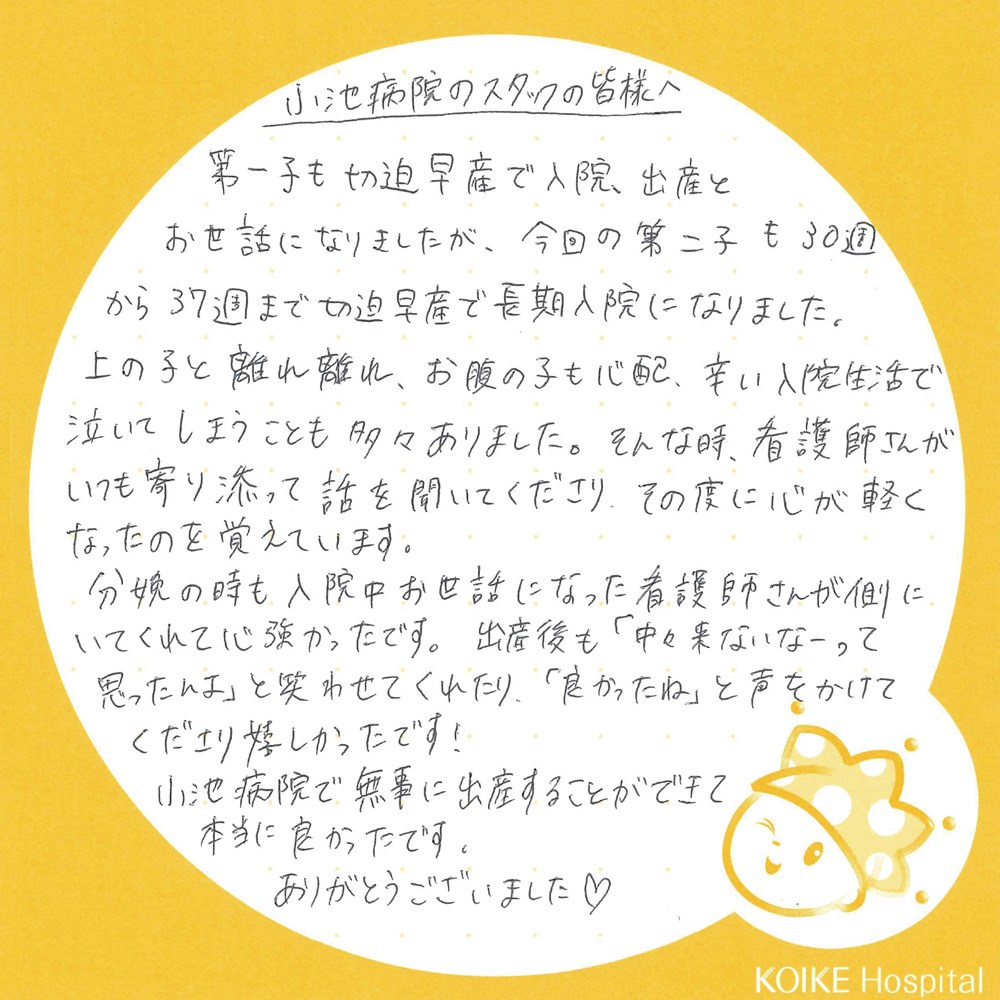 小池病院のスタッフの皆様へ
第一子も切迫早産で入院、出産と
お世話になりましたが、今回の第二子も30週
から37週まで切迫早産で長期入院になりました。
上の子と離れ離れ、お腹の子も心配、辛い入院生活で
泣いてしまうことも多々ありました。そんな時、看護師さんが
いつも寄り添って話を聞いてくださり、その度に心が軽く
なったのを覚えています。
分娩の時も入院中お世話になった看護師さんが側に
いてくれて心強かったです。出産後も「中々来ないなーって
思ったんよ」と笑わせてくれたり、「良かったね」と声をかけて
くださり嬉しかったです!
小池病院で無事に出産することができて
本当に良かったです。
ありがとうございました♡
KOIKE Hospital